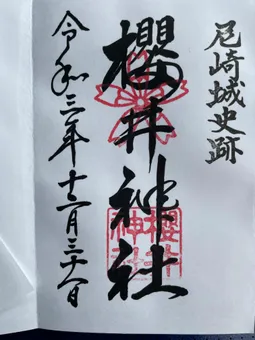 尼崎城史跡
櫻井神社
櫻井
神社
令和三年十一月三十日